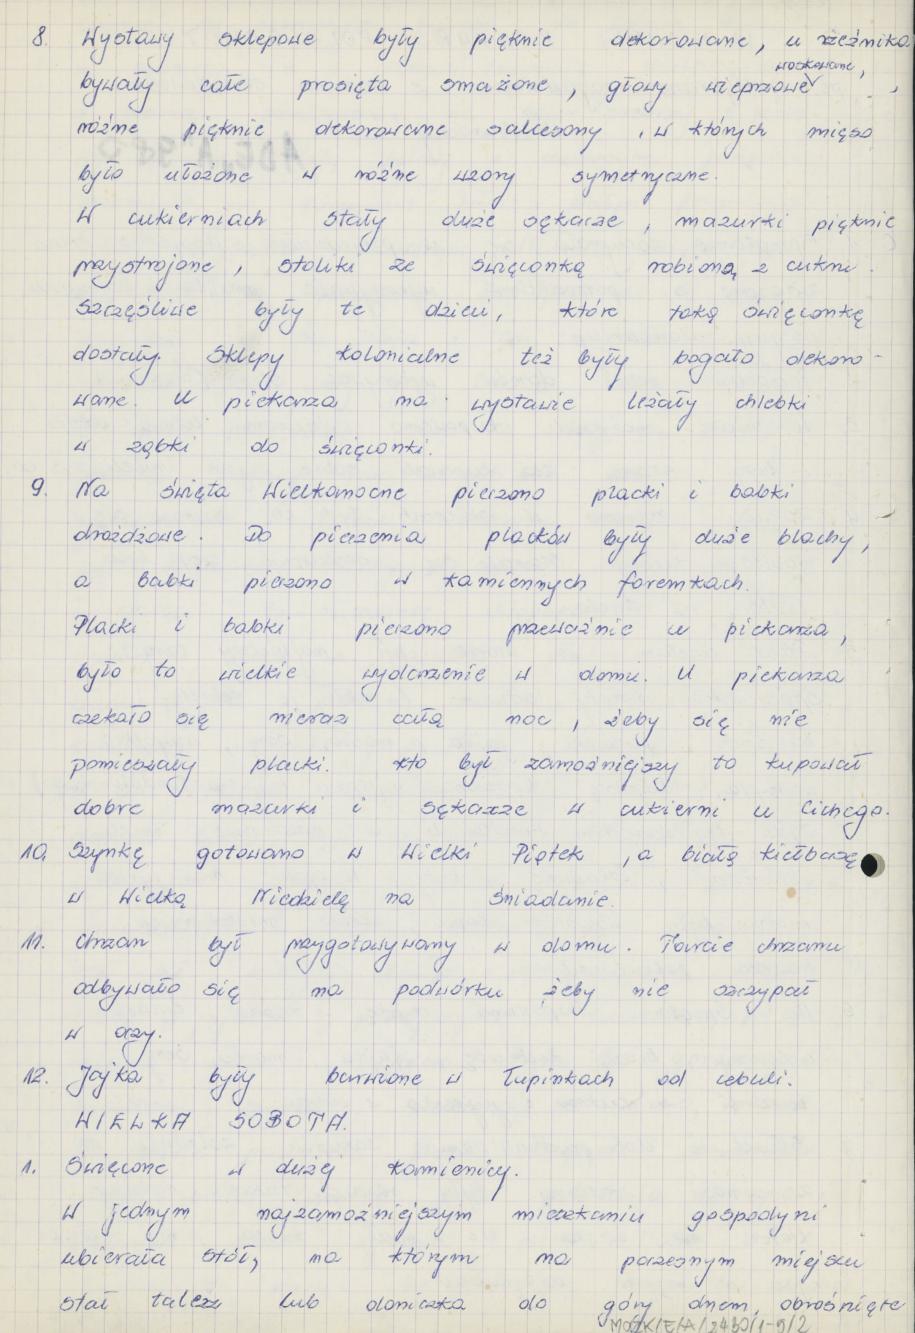 8. Wystawy sklepowe były pięknie dekorowane, u rzeźnika
woskowane,
bywały całe prosięta smażone, głowy wieprzowe,
różne pięknie dekorowane salcesony, w których mięso
było ułożone w różne wzory symetryczne.
W cukierniach stały duże sękacze, mazurki pięknie
przystrojone, stoliki ze święconką robioną z cukru.
Szczęśliwe były te dzieci, które taką święconkę
dostały. Sklepy kolonialne też były bogato dekoro-
wane. U piekarza na wystawie leżały chlebki
w ząbki do święconki.
9. Na święta Wielkanocne pieczono placki i babki
drożdżowe. Do pieczenia placków były duże blachy,
a babki pieczono w kamiennych foremkach.
Placki i babki pieczono przeważnie u piekarza,
było to wielkie wydarzenie w domu. U piekarza
czekało się nieraz całą noc, żeby się nie
pomieszały placki. kto był zamożniejszy to kupował
dobre mazurki i sękacze w cukierni u Cichego.
10. Szynkę gotowano w Wielki Piątek, a białą kiełbasę
w Wielką Niedzielę na śniadanie.
11. Chrzan był przygotowywany w domu. Tarcie chrzanu
odbywało się na podwórku żeby nie szczypał
w oczy.
12. Jajka były barwione w łupinkach od cebuli.
WIELKA SOBOTA.
1. Święcone w dużej kamienicy.
W jednym najzamożniejszym mieszkaniu gospodyni
ubierała stół, na którym na poczesnym miejscu
stał talerz lub doniczka do góry dnem, obrośnięte